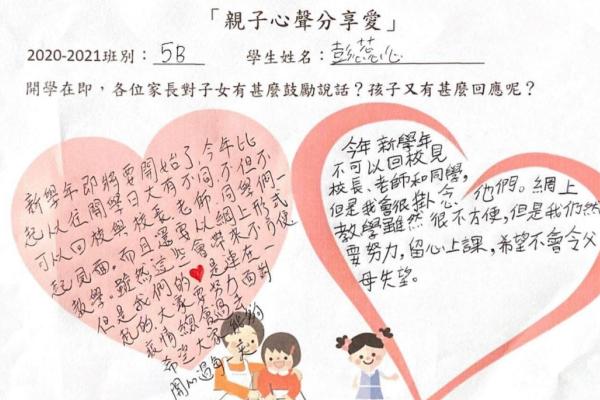 「親子心聲分享愛」
2020-2021班別：5B 學生姓名：彭蕊心
開學在即，各位家長對子女有甚麼鼓勵說話？孩子又有甚麼回應呢？
新學年即將要開始了，今年比
起以往開學日大有不同，不但不
可以回校與校長、老師、同學們一
起見面。而且還要以網上形式
教學。雖然這些會帶來不方便
但是我們的❤是連在一
起的，大家要努力面對
疫情總會過去
希望大家能夠
開心過每天
今年新學年
不可以回校見
校長、老師和同學，
但是我會很掛念他們。網上
教學雖然很不方便，但是我仍然
要努力，留心上課，希望不會令父
母失望。